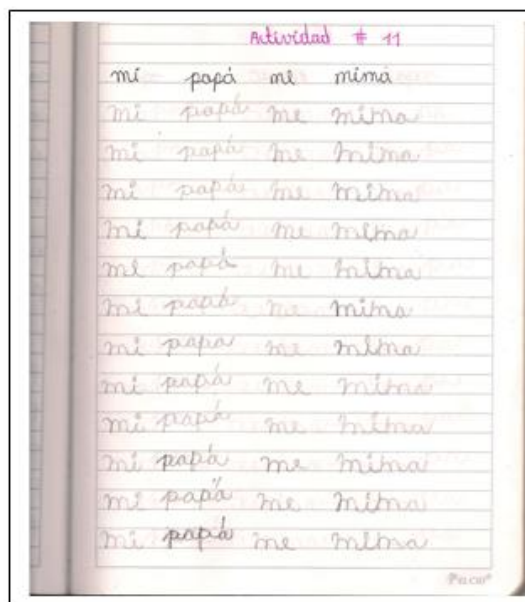 Actividad # 11
mi papá me mima
mi papá me mima
mi papá me mima
mi papá me mima
mi papá me mima
mi papá me mima
mi papá me mima
mi papa me mima
mi papá me mima
mi papá me mima
mi papá me mima
mi papá me mima
mi papá me mima